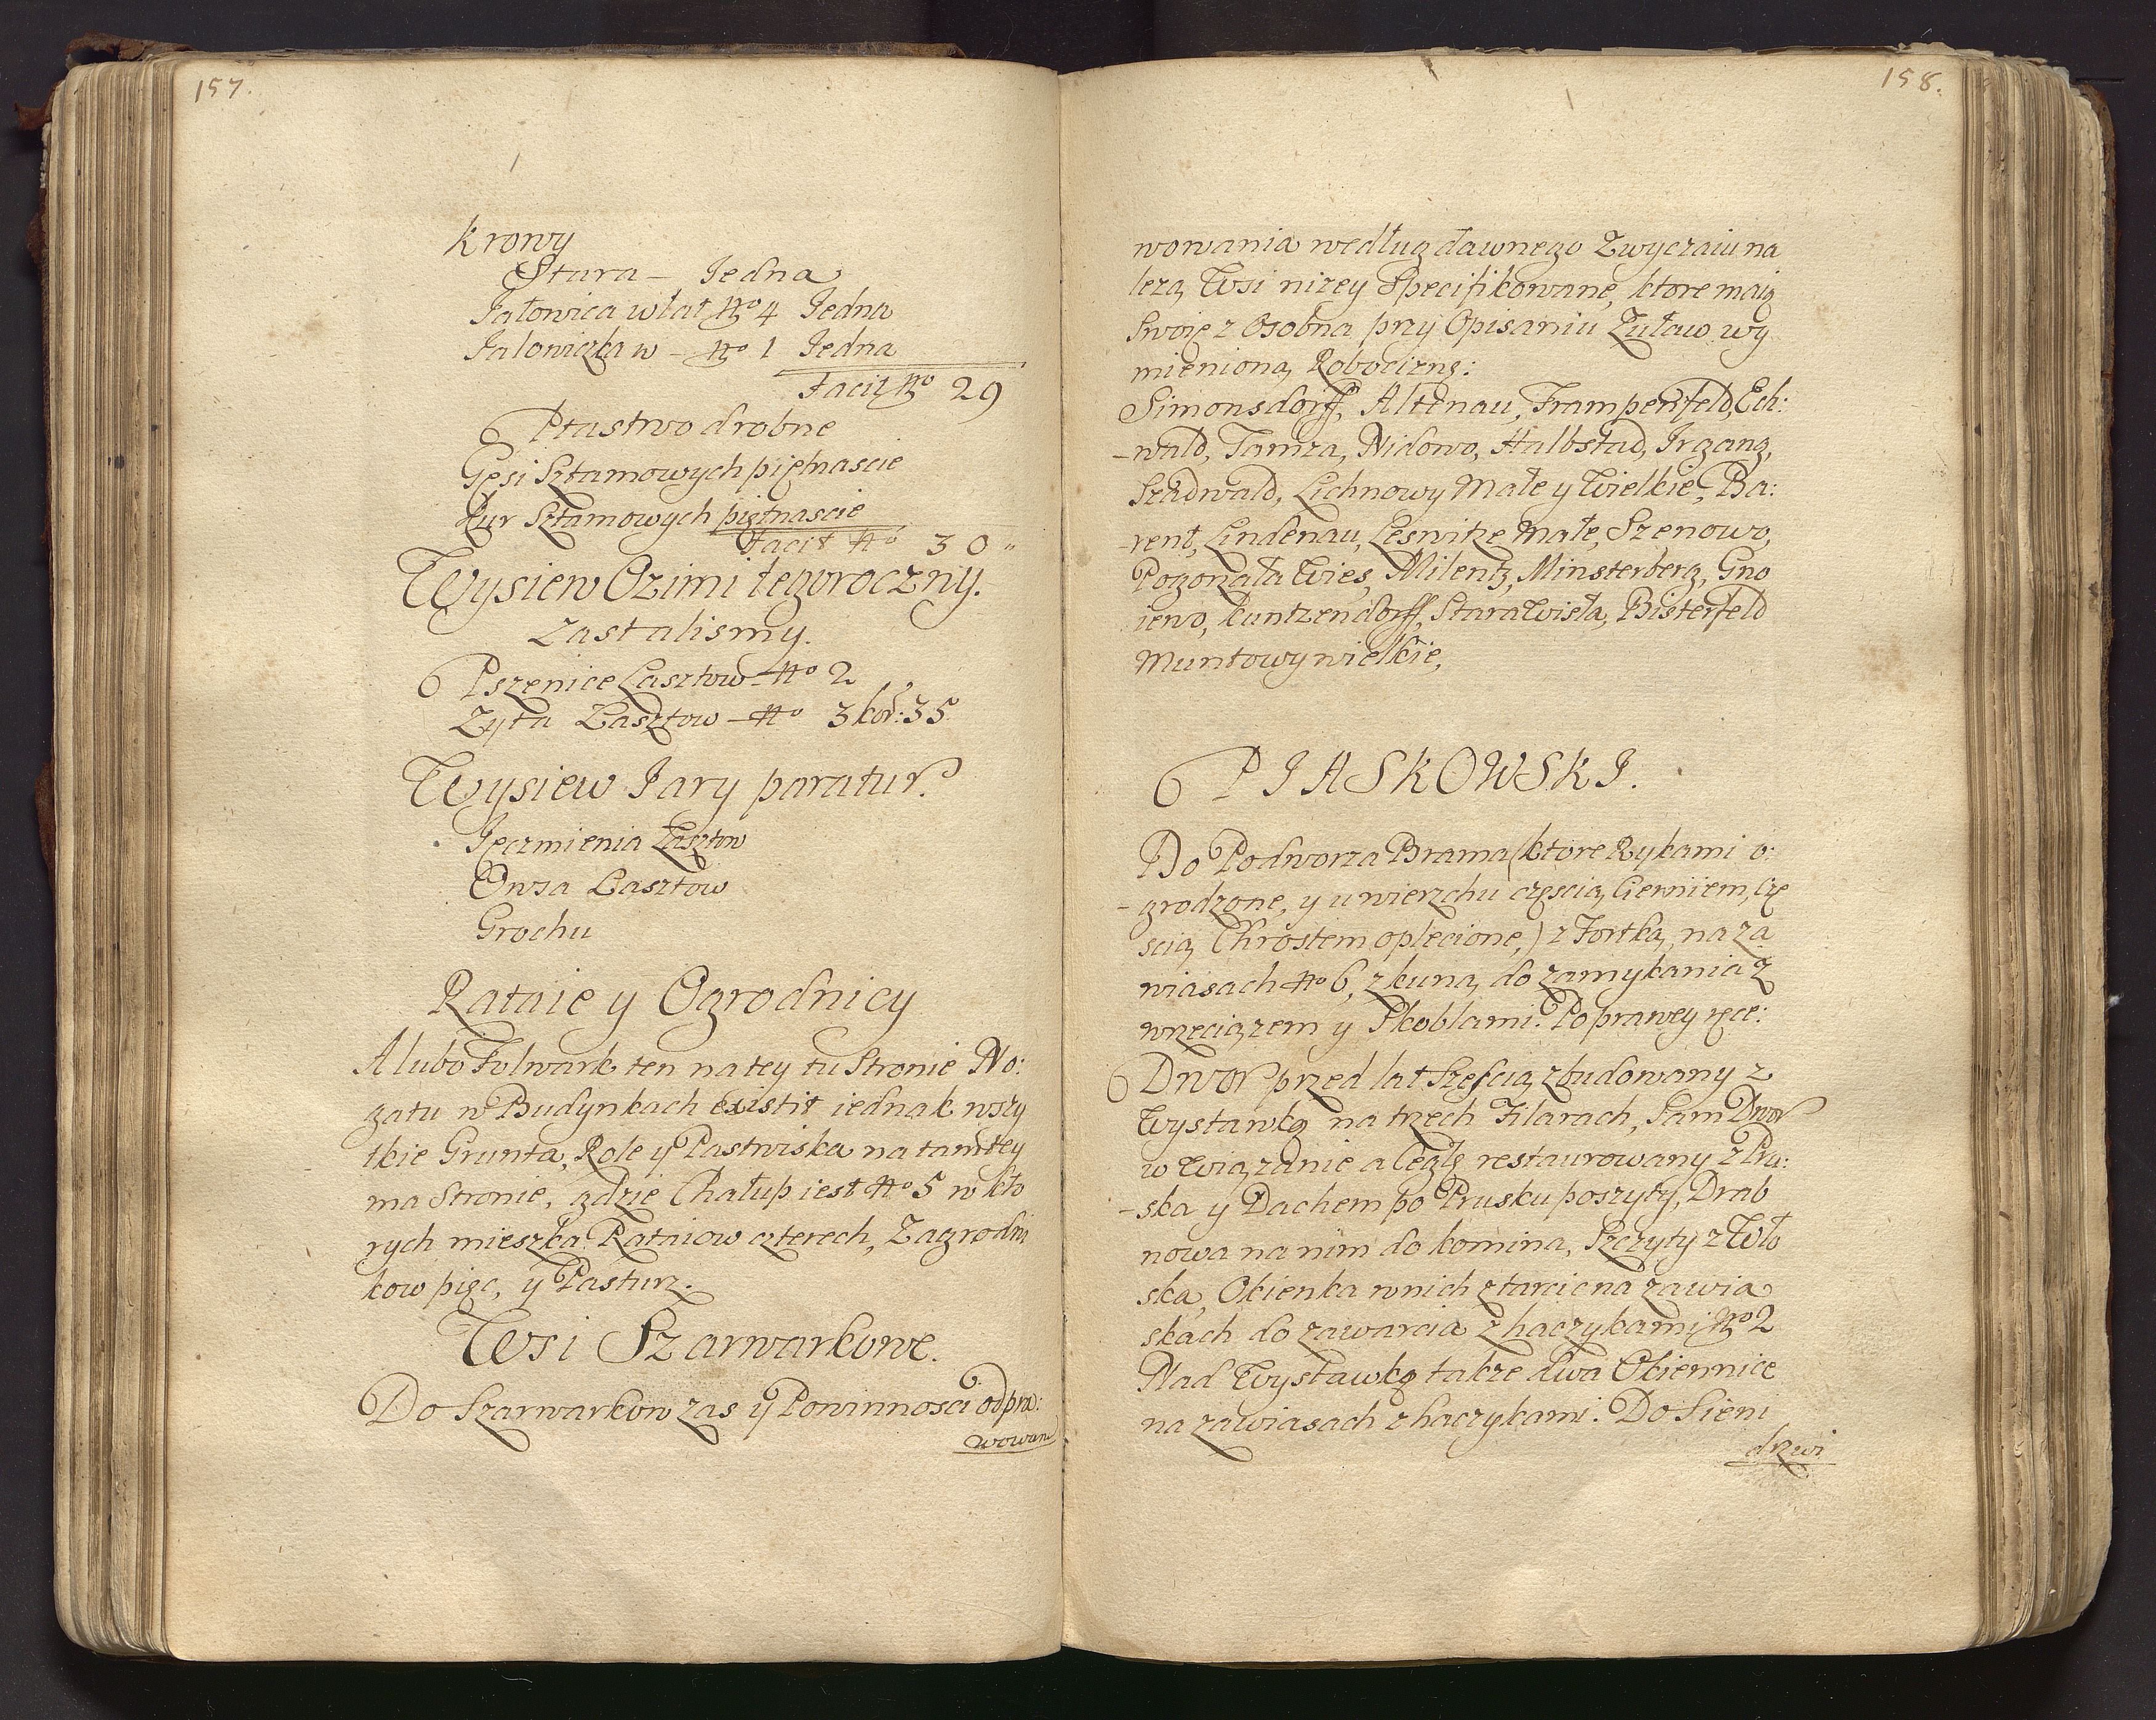 157.
Krowy
Stara – Jedna
Jałowica w lat No 4 Jedna
Jałowiczka w – No 1 Jedna
Facit No 29
Ptastwo drobne
Gęsi Sztamowych piętnascie
Kur Sztamowych piętnascie
Facit No 30
Wysiew Ozimi tegoroczny.
Zastalismy.
Pszenice Lasztow No 2
Zyta Lasztow – No 3 kor: 35
Wysiew Jary paratur.
Jęczmienia Lasztow
Owsa Lasztow
Grochu
Rataie y Ogrodnicy
A lubo Folwark ten na tey tu Stronie No:
gatu w Budynkach existit iednak wszy
tkie Grunta, Role y Pastwiska na tamtey
ma Stronie, gdzie Chałup iest No 5 w kto
rych mieszka Rataiow czterech, Zagrodni
kow pięc, y Pasturz.
Wsi Szarwarkowe.
Do Szarwarkow zas y Powinnosci odpra:
wowani
158.
wowania według dawnego Zwyczaiu na
lezą Wsi nizey Specifikowane, ktore maią
Swoię z Osobna przy Opisaniu Zuław wy
mienioną Robociznę:
Simonsdorff, Altenau, Trampenfeld, Ech:
-wald, Tamza, Nidowo, Halbstad, Irgang,
Szadwald, Lichnowy Małe y Wielkie, Ba:
-rent, Lindenau, Leswitze Małe, Szenowo,
Pogorzała Wies, Milentz, Minsterberg, Gno
iewo, Kuntzendorff, Stara Wisła, Bisterfeld
Muntowy wielkie,
PIASKOWSKI.
Do Podworza Brama (ktore Rykami o:
-grodzone, y u wierzchu częscią Cierniem, czę
scią Chrostem oplecione,) z Fortką, na za
wiasach No 6, z kuną do zamykania z
wrzeciązem y Skoblami. Po prawey ręce:
Dwor przed lat Szescią zbudowany z
Wystawką na trzech Filarach, Sam Dwor
w Wiązanie a Cegłę restaurowany z Pru:
-ska y Dachem po Prusku poszyty, Drab
nowa na nim do komina, Szczyty z Wło
ska, Okienka w nich z tarcic na zawia
skach do zawarcia z haczykami No 2
Nad Wystawką takze dwa Okiennice
na zawiasach z haczykami. Do Sieni
drzwi